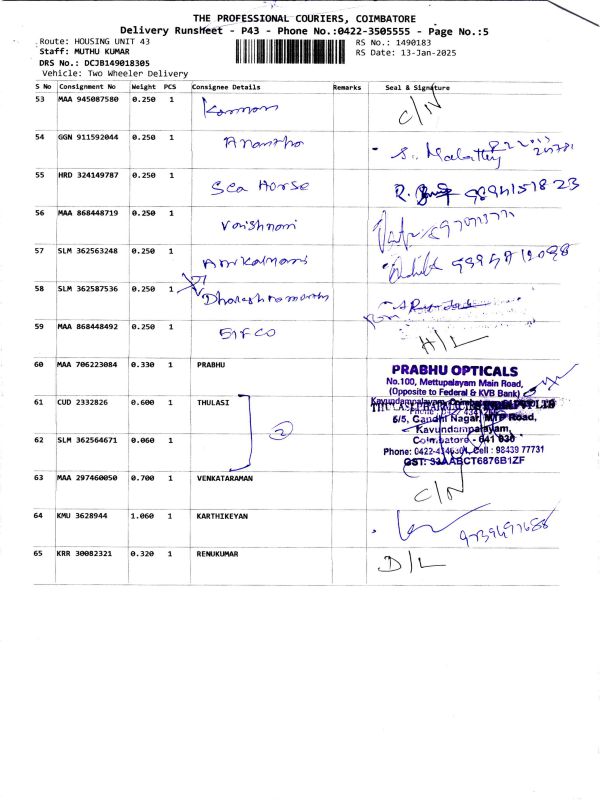 THE PROFESSIONAL COURIERS, COIMBATORE
Delivery Runsheet - P43 - Phone No.:0422-3505555 - Page No.:5
Route: HOUSING UNIT 43
RS No.: 1490183
Staff: MUTHU KUMAR
RS Date: 13-Jan-2025
DRS No.: DCJB149018305
Vehicle: Two Wheeler Delivery
S No Consignment No Weight PCS Consignee Details Remarks Seal & Signature
53 MAA 945087580 0.250 1 C/N
54 GGN 911592044 0.250 1 Anantha
55 HRD 324149787 0.250 1 Sea Horse
56 MAA 868448719 0.250 1 Vaishnavi
57 SLM 362563248 0.250 1
58 SLM 362587536 0.250 1
59 MAA 868448492 0.250 1 H/L
60 MAA 706223084 0.330 1 PRABHU
PRABHU OPTICALS
No.100, Mettupalayam Main Road,
(Opposite to Federal & KVB Bank)
61 CUD 2332826 0.600 1 THULASI
6/5, Gandhi Nagar, MTP Road,
Kavundampalayam,
Coimbatore - 641 030
62 SLM 362564671 0.060 1 2
Cell : 98439 77731
GST: 33AABCT6876B1ZF
63 MAA 297460050 0.700 1 VENKATARAMAN C/N
64 KMU 3628944 1.060 1 KARTHIKEYAN
65 KRR 30082321 0.320 1 RENUKUMAR D/L